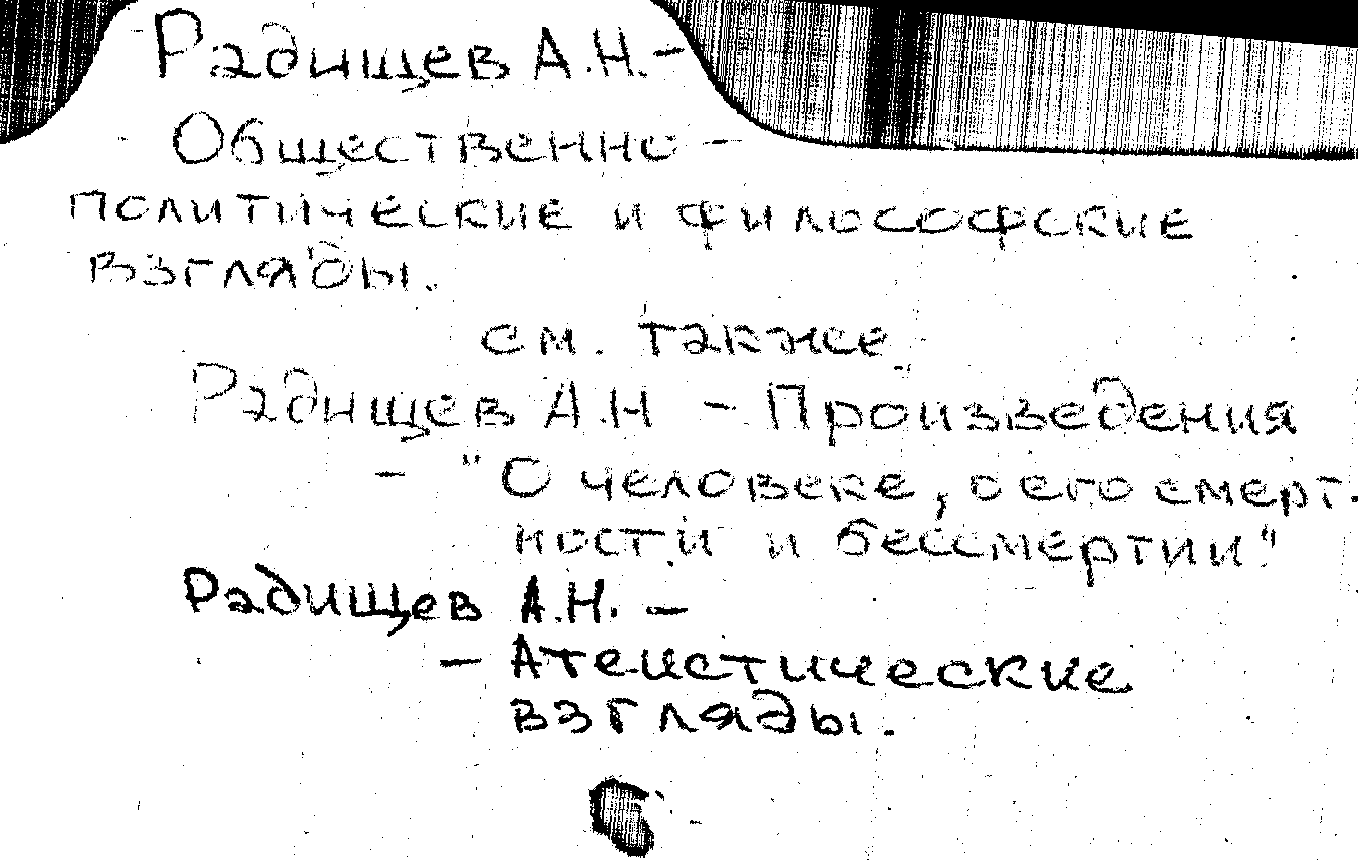 Радищев А.Н. -
- Общественно -
политические и философские
взгляды.
см. также
Радищев А.Н - Произведения
- "О человеке, о его смерт-
ности и бессмертии"
Радищев А.Н. -
- Атеистические
взгляды.